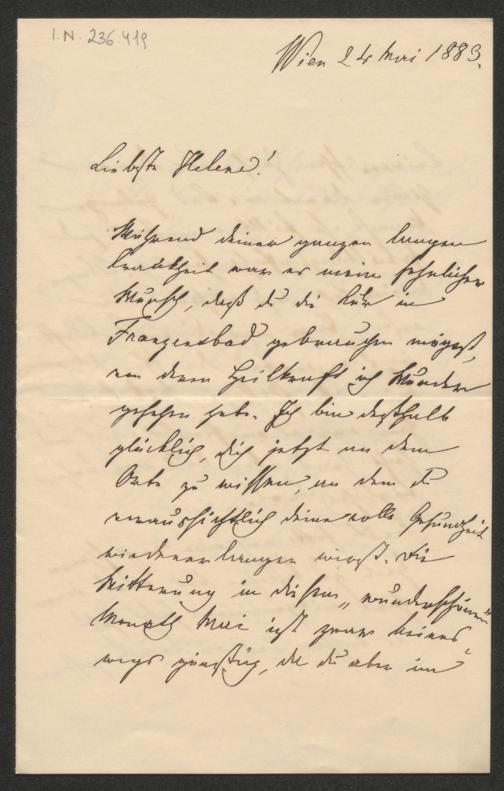 I.N. 236.419
Wien 24 Mai 1883.
Liebste Helene!
Während deiner ganzen langen
Krankheit war es mein sehnlicher
Wunsch, daß du die Kur in
Franzensbad gebrauchen mögest,
von deren Heilkraft ich Wunder
gesehen habe. Ich bin deßhalb
glücklich, dich jetzt an dem
Orte zu wissen, an dem du
voraussichtlich deine volle Gesundheit
wiedererlangen wirst. Die
Witterung in diesem „wunderschönen“
Monath Mai ist zwar keines-
wegs günstig, da du aber im